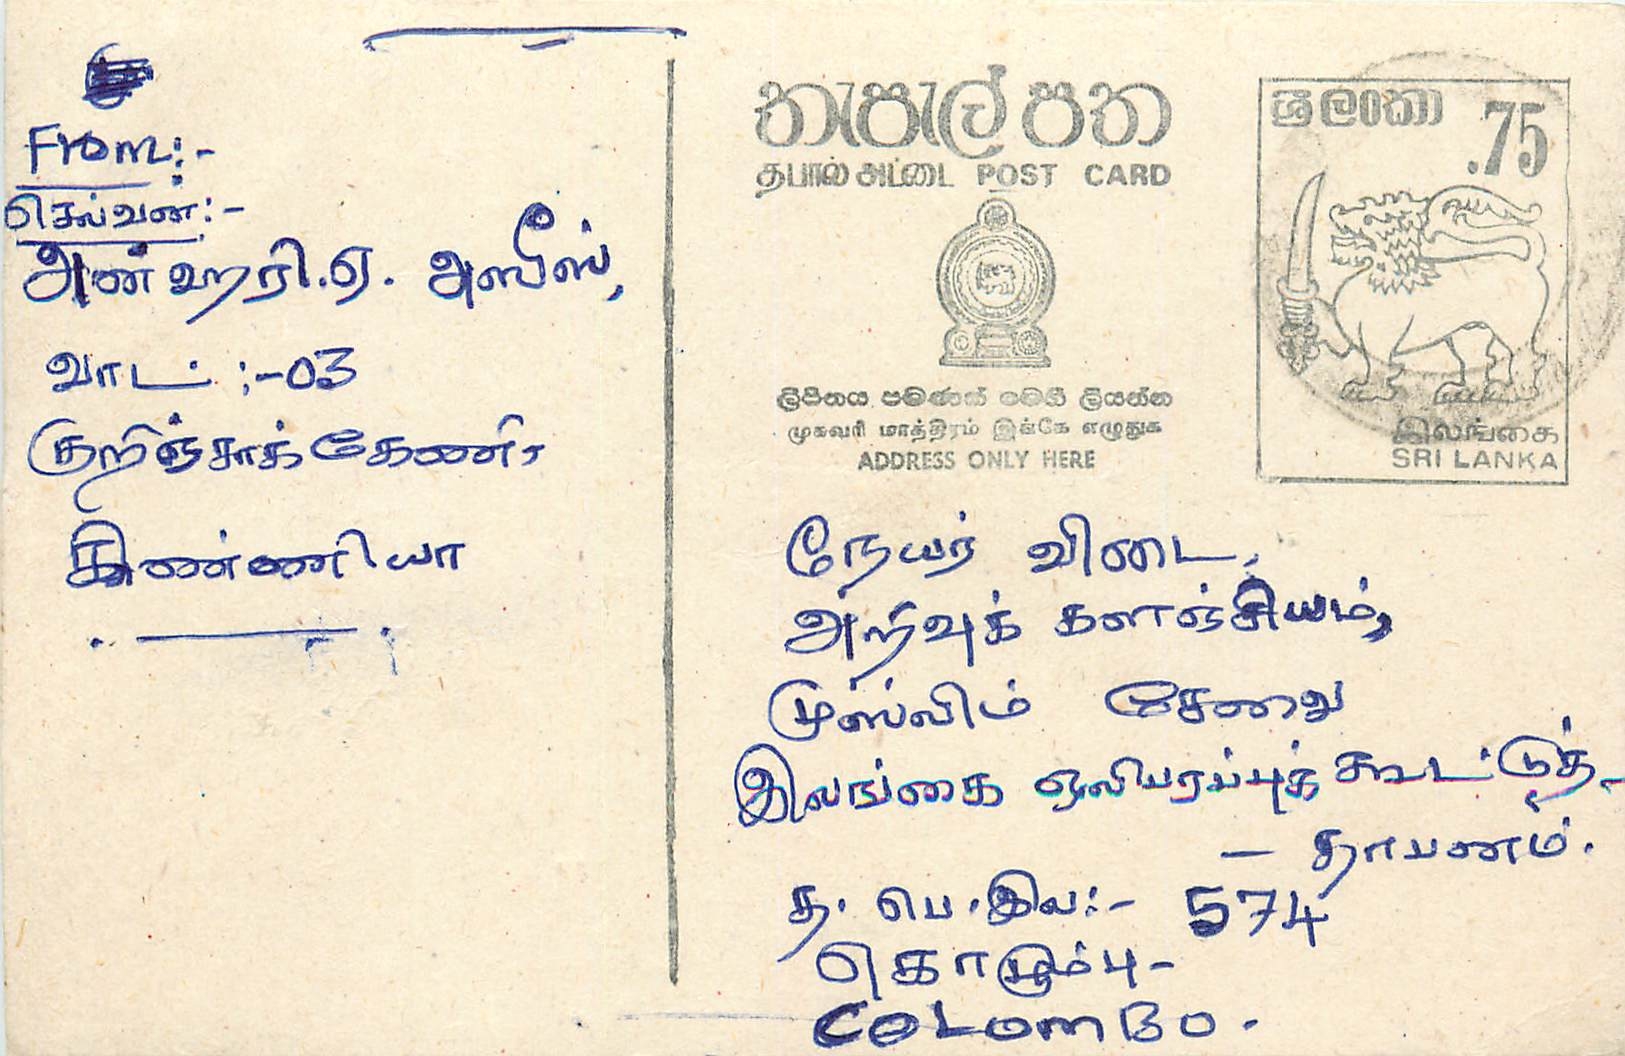 From:-
செல்வன்:-
அன்ஹரி.ஏ. அஸீஸ்,
வாட் :-03
குறிஞ்சாக்கேணி,
கிண்ணியா
තැපැල් පත
தபால் அட்டை POST CARD
ලිපිනය පමණක් මෙහි ලියන්න
முகவரி மாத்திரம் இங்கே எழுதுக
ADDRESS ONLY HERE
ශ්‍රී ලංකා .75
இலங்கை
SRI LANKA
நேயர் விடை,
அறிவுக் களஞ்சியம்,
முஸ்லிம் சேவை
இலங்கை ஒலிபரப்புக் கூட்டுத்-
- தாபனம்.
த. பெ.இல:- 574
கொழும்பு-
COLOMBO.